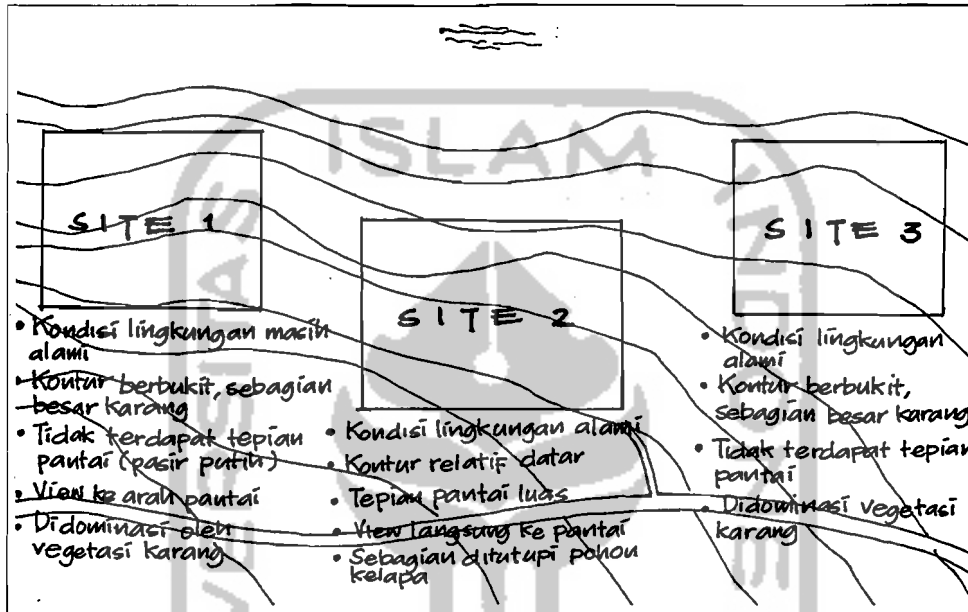 ISLAM
SITE 1
SITE 2
SITE 3
• Kondisi lingkungan masih
alami
• Kontur berbukit, sebagian
besar karang
• Tidak terdapat tepian
pantai (pasir putih)
• View ke arah pantai
• Didominasi oleh
vegetasi karang
• Kondisi lingkungan alami
• Kontur relatif datar
• Tepian pantai luas
• View langsung ke pantai
• Sebagian ditutupi pohon
kelapa
• Kondisi lingkungan
alami
• Kontur berbukit,
sebagian besar karang
• Tidak terdapat tepian
pantai
• Didominasi vegetasi
karang